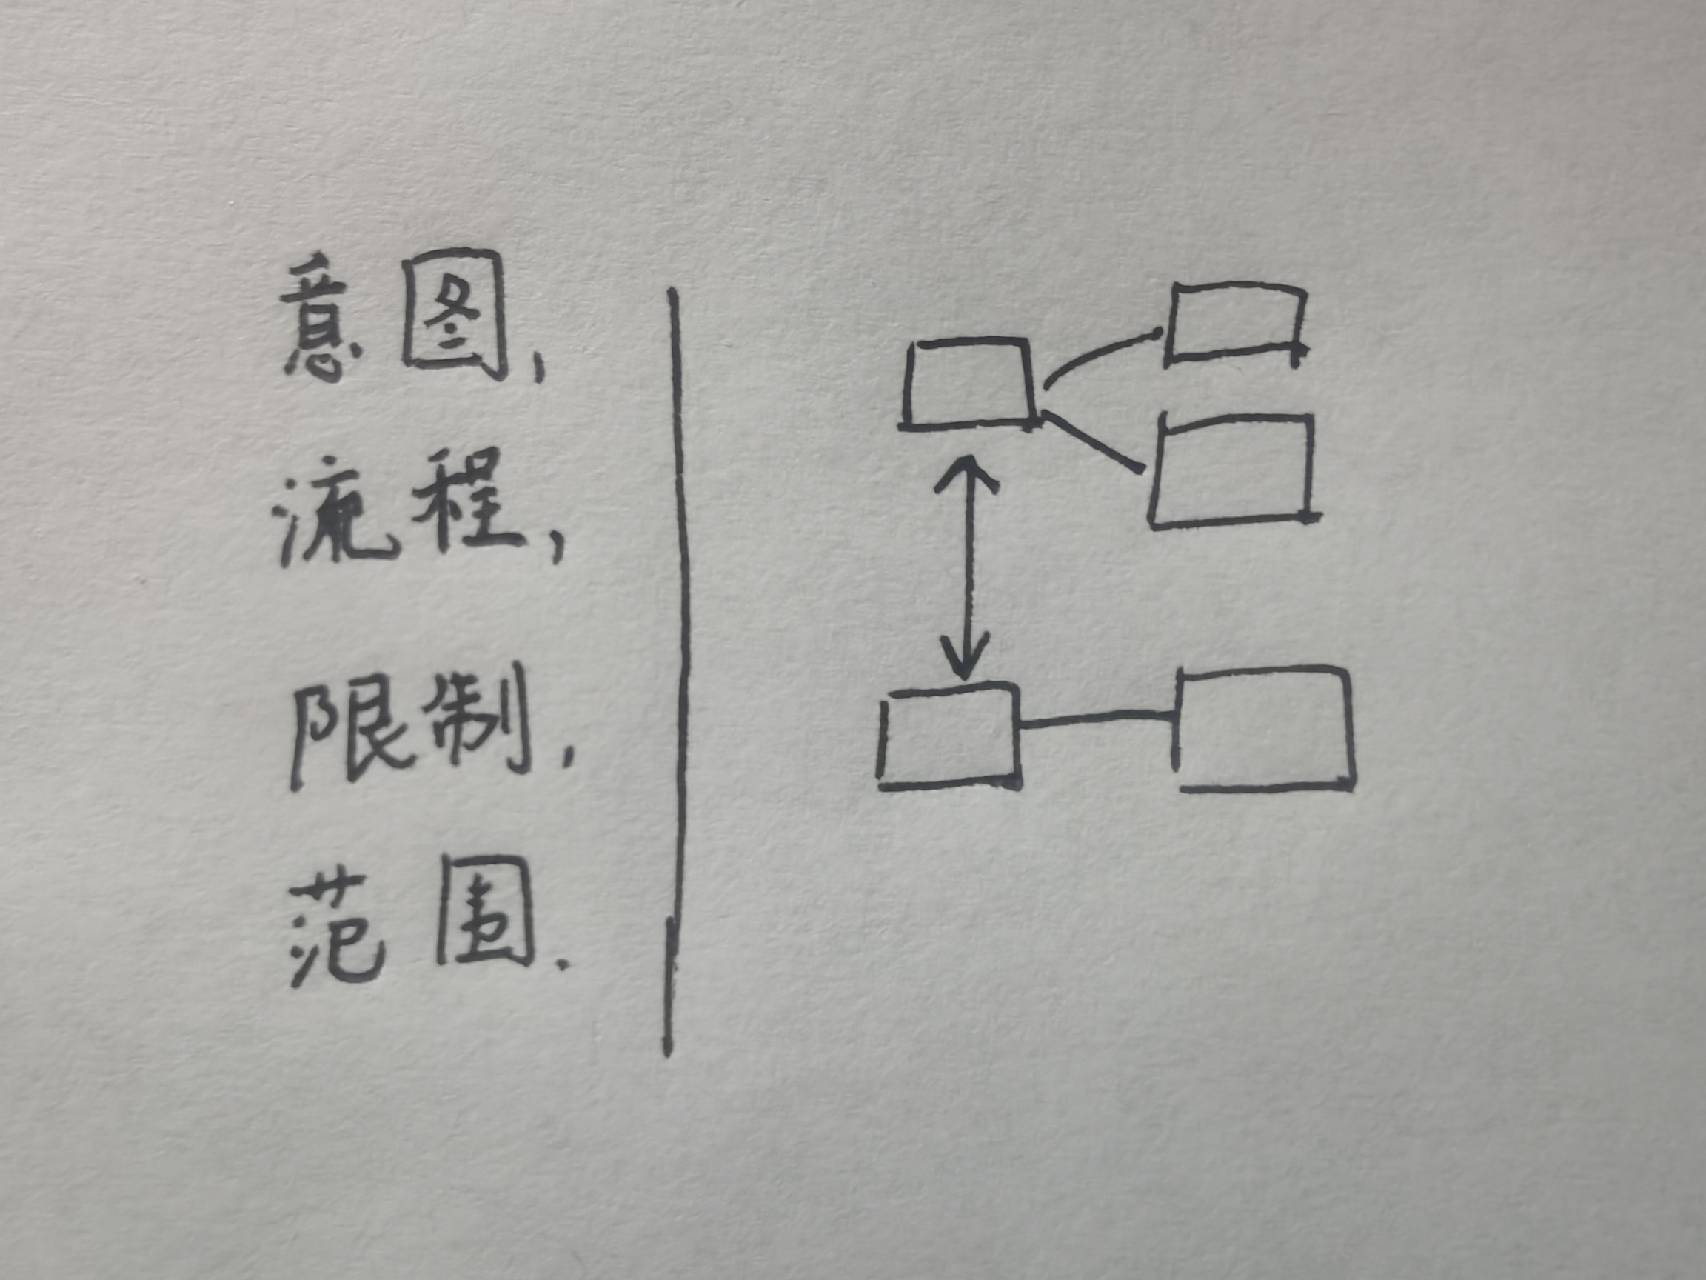 意图,
流程,
限制,
范围.